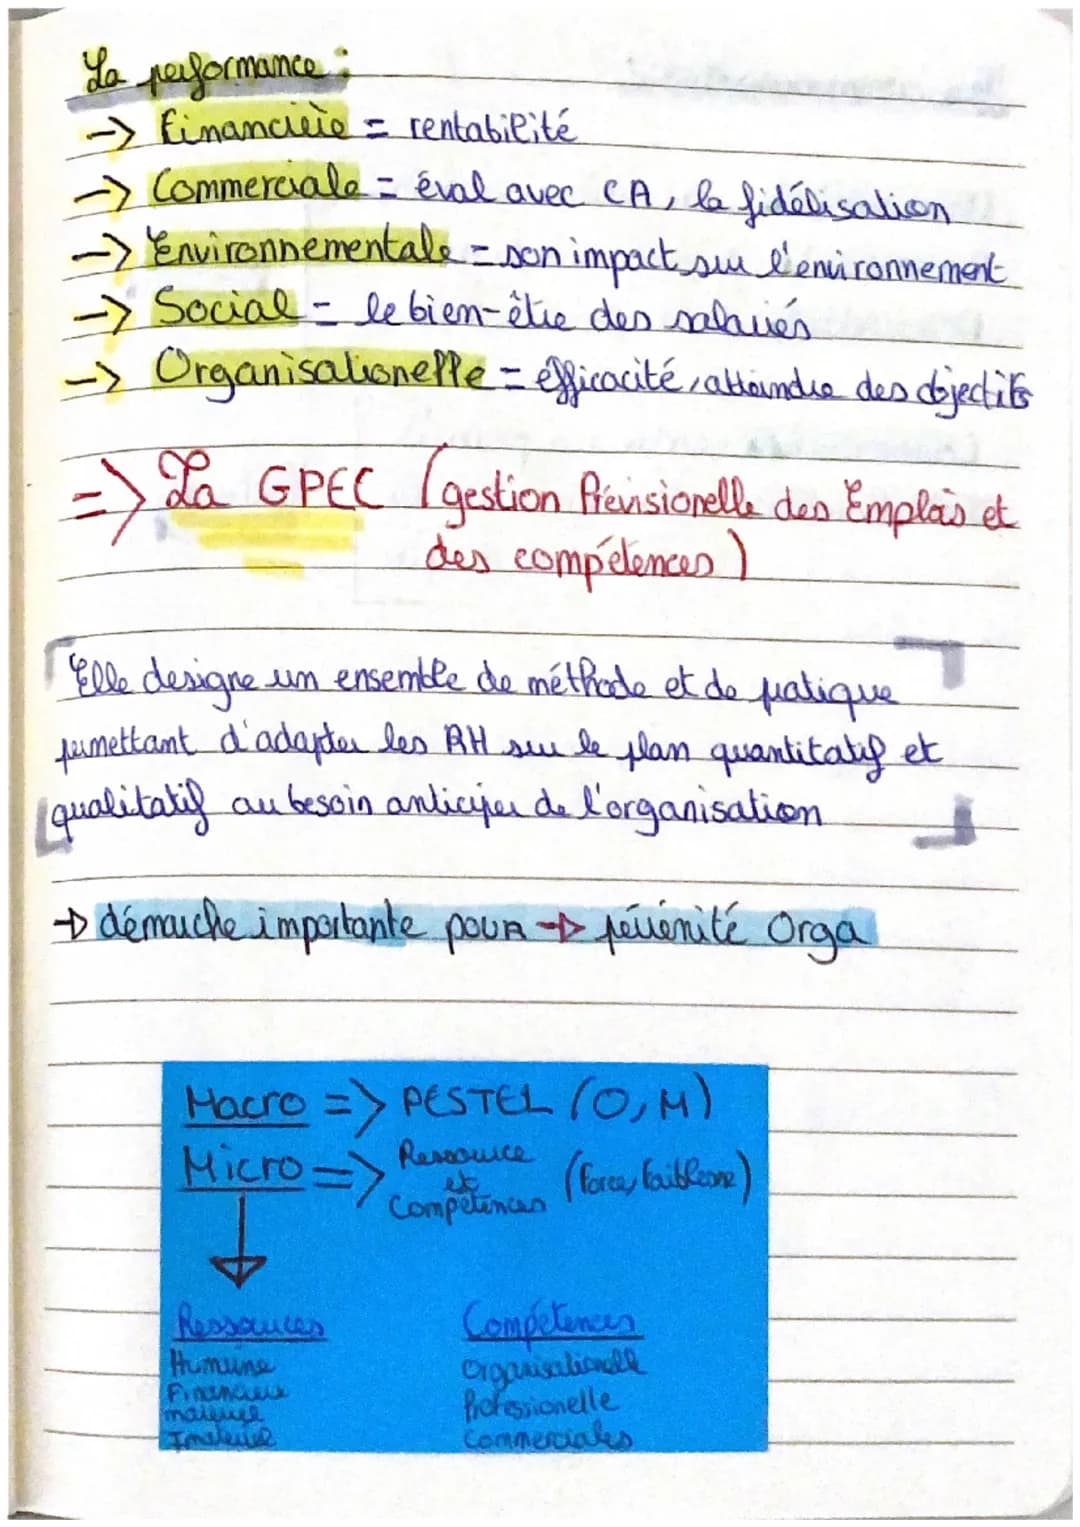 La performance :
-> Financière = rentabilité
-> Commerciale = éval avec CA, la fidélisation
-> Environnementale = son impact sur l'environnement
-> Social = le bien-être des salariés
-> Organisationelle = efficacité, atteindre des objectifs
=> La GPEC (gestion Prévisionelle des Emplois et
des compétences)
Elle designe un ensemble de méthode et de pratique
permettant d'adapter les RH sur le plan quantitatif et
qualitatif au besoin anticiper de l'organisation
-> démarche importante pour -> pérénité Orga
Macro => PESTEL (O, M)
Micro => Ressource et Compétences (Force, Faiblesse)
Ressources Compétences
Humaine Organisationelle
Financière Professionelle
materiel Commerciales
Imateriel